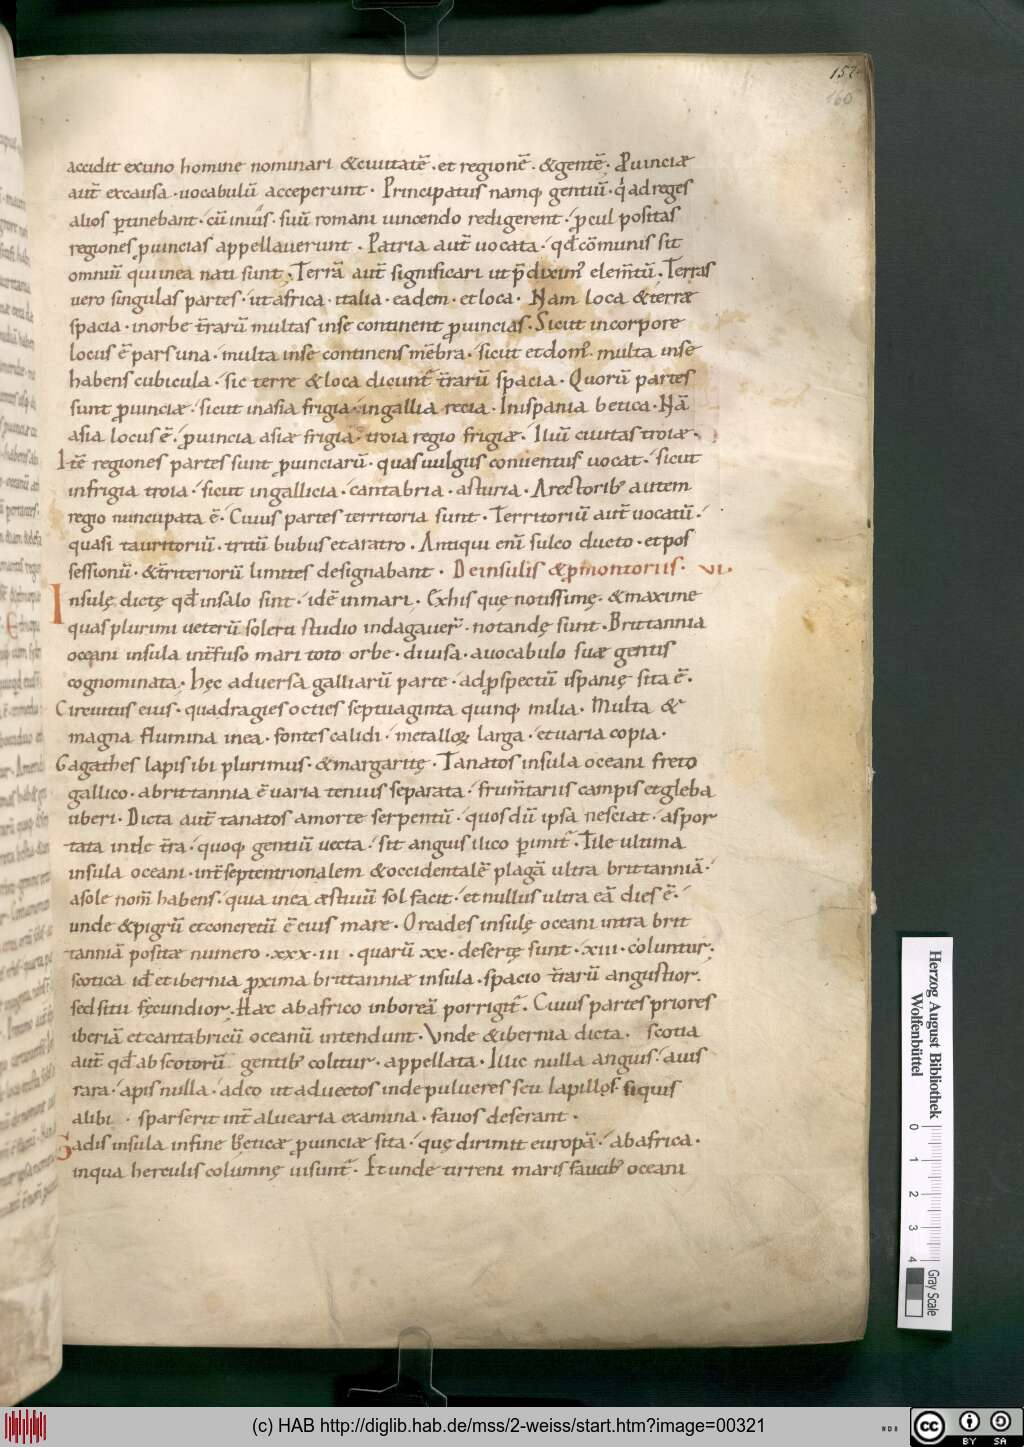 157
160
accidit exuno homine nominari &ciuitatē · et regionē · &gentē · Ꝓuinciæ
aut̄ excausa · uocabulū acceperunt · Principatus namq; gentiū · q̇ adreges
alios ꝑtinebant · cū inuis̄ · suū romani uincendo redigerent · ꝓcul positas
regiones ꝓuincias appellauerunt · Patria aut̄ uocata · qđ cōmunis sit
omniū qui inea nati sunt · Terrā aut̄ significari ut p̄diximꝰ elem̄tū · Terras
uero singulas partes · ut africa · italia · eadem · et loca · Nam loca &terræ
spacia · inorbe t̄rarū multas inse continent ꝓuincias · Sicut incorpore
locus ē pars una · multa inse continens mēbra · sicut et domꝰ multa inse
habens cubicula · sic terre &loca dicunt̄ t̄rarū spacia · Quorū partes
sunt ꝓuinciæ · sicut inasia frigia · ingallia recia · Inispania betica · Nā
asia locus ē · ꝓuincia asiæ frigia · troia regio frigiæ · Iliū ciuitas troiæ ·
Itē regiones partes sunt ꝓuinciarū · quas uulgus conuentus uocat · sicut
infrigia troia · sicut ingallicia · cantabria · asturia · Arectorib; autem
regio nuncupata ē · Cuius partes territoria sunt · Territoriū aut̄ uocatū ·
quasi tauritoriū · tritū bubus et aratro · Antiqui enī sulco ducto · et pos
sessionū · &t̄riteriorū limites designabant · De insulis &ꝓmontoriis · VI ·
Insulę dictę qđ insalo sint · idē inmari · Exhis quę notissimę · &maxime
quas plurimi ueterū solerti studio indagauer̄ · notandę sunt · Brittannia
oceani insula int̄fuso mari toto orbe · diuisa · auocabulo suæ gentis
cognominata · hęc aduersa galliarū parte · adꝓspectū ispanię sita ē ·
Circuitus eius · quadragies octies septuaginta quinq; milia · Multa &
magna flumina inea · fontes calidi · metalloꝝ larga · et uaria copia ·
Gagathes lapis ibi plurimus · &margaritę · Tanatos insula oceani freto
gallico · abrittannia ē uaria tenuis separata · frum̄tariis campis et gleba
uberi · Dicta aut̄ tanatos amorte serpentū · quos dū ipsa nesciat · aspor
tata inde t̄ra · quoq; gentiū uecta · sit anguis ilico ꝑimit̄ · Tile ultima
insula oceani · int̄ septentrionalem &occidentalē plagā ultra brittanniā ·
asole nom̄ habens · quia inea æstiuū sol facit · et nullus ultra eā dies ē ·
unde &pigrū et concretū ē eius mare · Orcades insulę oceani intra brit
tanniā positæ numero · xxx · iii · quarū xx · desertę sunt · xiii · coluntur ·
scotica iđ et ibernia ꝓxima brittanniæ insula · spacio t̄rarū angustior ·
sed situ fęcundior · Hæc abafrico inboreā porrigit̄ · Cuius partes priores
iberiā et cantabricū oceanū intendunt · Unde &ibernia dicta · scotia
aut̄ qđ abscotorū gentib; colitur · appellata · Illic nulla anguis · auis
rara · apis nulla · adeo ut aduectos inde pulueres seu lapillos siquis
alibi · sparserit int̄ aluearia examina · fauos deserant ·
Gadis insula infine beticæ ꝓuinciæ sita · quę dirimit europā · abafrica ·
inqua herculis columnę uisunt̄ · Et unde tirreni maris faucib; oceani
Herzog August Bibliothek
Wolfenbüttel
0 1 2 3 4
Gray Scale
(c) HAB http://diglib.hab.de/mss/2-weiss/start.htm?image=00321
cc BY SA